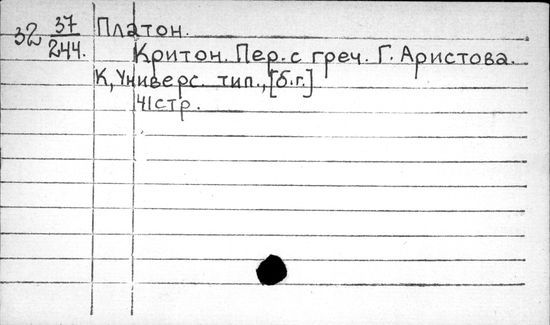 32 37/244. Платон.
Критон. Пер. с греч. Г. Аристова.
К, Универс. тип., [б.г.]
41стр.